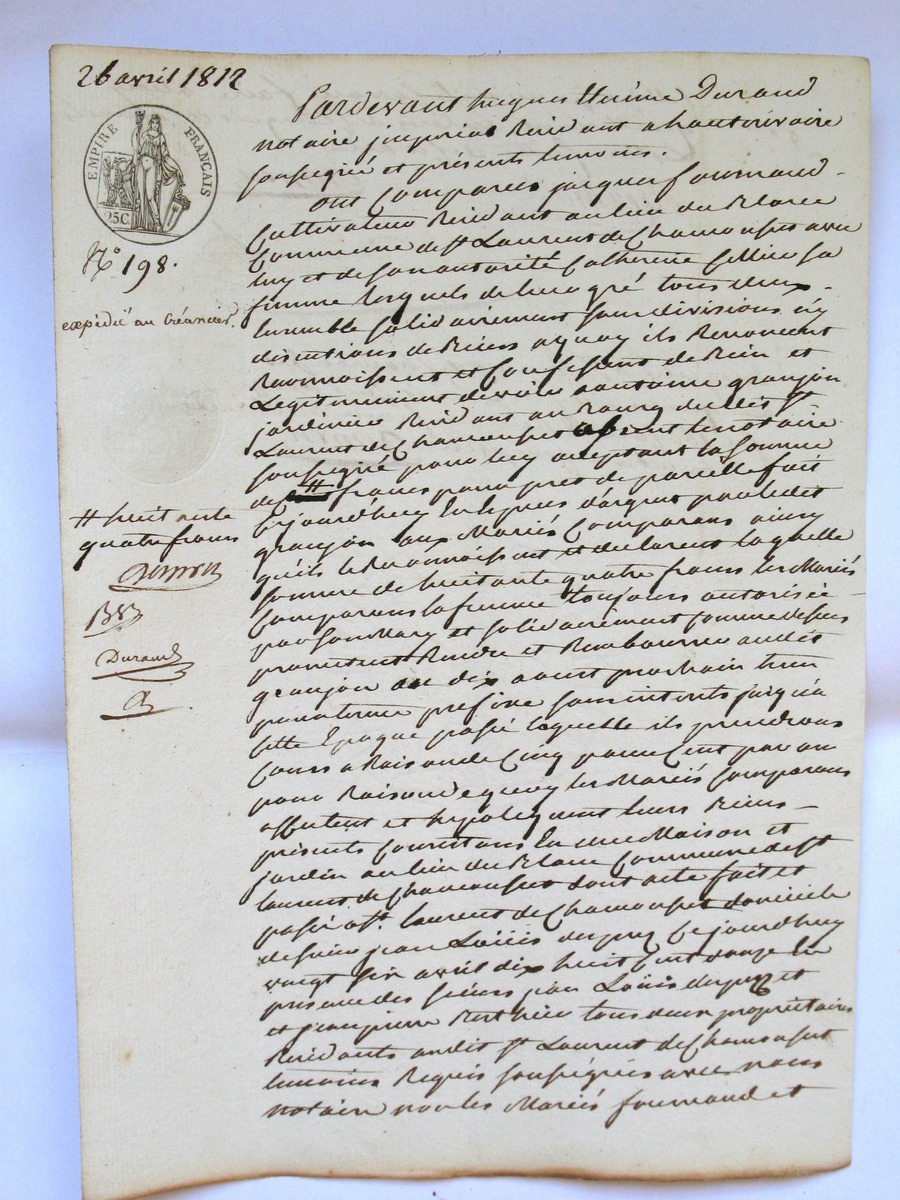 26 avril 1812
EMPIRE FRANÇAIS
25C
N.° 198.
expédié au Créancier.
# huit ante
quatre francs
Durand
Pardevant hugues Durand
notaire imperial Résidant a hauterivoire
soussigné et présents temoins.
Ont Comparus jacques fournand
Cultivateur Résidant au lieu du Blanc
Commune de st Laurent de Chamousset avec
luy et de son autorité Catherine sa
femme lesquels de leur gré tous deux
Ensemble solidairement sans divisions ny
discutions de Biens a quoy ils Renoncent
Reconnoissent et Confessent de Bien et
Légitimement devoir a antoine granjon
jardinier Résidant au Bourg dudit st
Laurent de Chamousset absent le notaire
soussigné pour luy acceptant la somme
de # francs pour pret de pareille fait
Cejourdhuy en Espèces d'argent par ledit
granjon aux Mariés Comparans ainsy
qu'ils le Reconnoissent et declarent laquelle
somme de huitante quatre francs les Mariés
Comparans la femme toujours autorisée
par son Mary et solidairement comme dessus
promettent Rendre et Rembourser audit
granjon au dix aoust prochain
pour terme préfixe sans interets jusqu'a
cette Epoque passé laquelle ils prendront
Cours a Raison de Cinq pour Cent par an
pour Raison de quoy les Mariés Comparans
affectent et hypotequent leurs Biens
présents Consistans En une Maison et
jardin au lieu du Blanc Commune de st
laurent de Chamousset dont acte fait et
passé a st. laurent de Chamousset domicile
de sieur jean Loüis dupuy Cejourdhuy
vingt six avril dix huit cent douze En
présence des sieurs jean Loüis dupuy et
et jean pierre Berthier tous deux propriétaires
Résidants audit st Laurent de Chamousset
temoins Requis soussignés avec nous
notaire non les Mariés fournand et